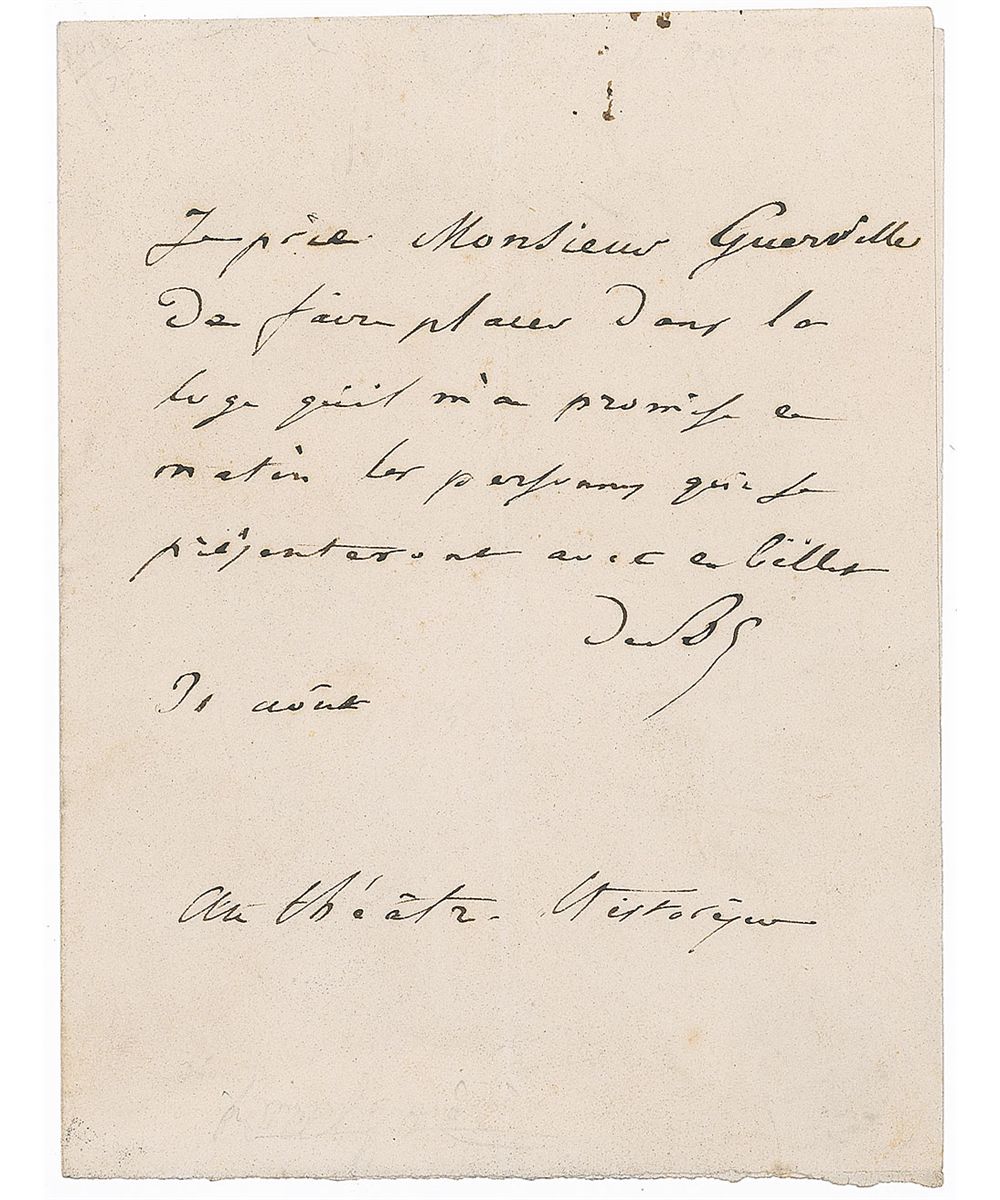 Je prie Monsieur Guerville
De faire placer Dans la
loge qu'il m'a promise ce
matin les personnes qui se
présenteront avec ce billet
De Bc
31 août
au théâtre Historique